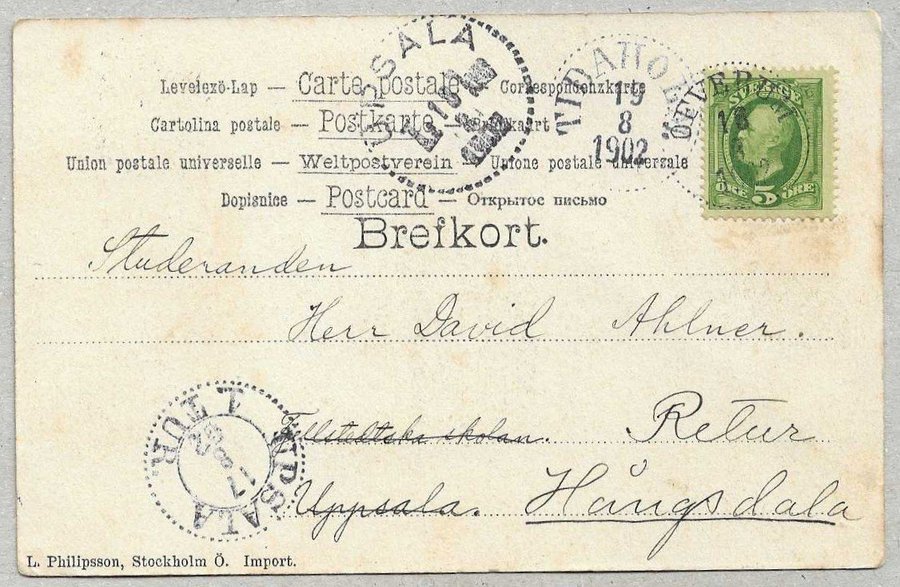 Levelezö-Lap — Carte postale — Correspondenzkarte
Cartolina postale — Postkarte — Briefkaart
Union postale universelle — Weltpostverein — Unione postale universale
Dopisnice — Postcard — Открытое письмо
Brefkort.
UPSALA
TIDAHOLM
19
8
1902
SVERIGE
ÖRE 5 ÖRE
Studeranden
Herr David Ahlner.
Fjellstedtska skolan. Retur
Uppsala. Hångsdala
UPSALA
1 TUR
17
L. Philipsson, Stockholm Ö. Import.